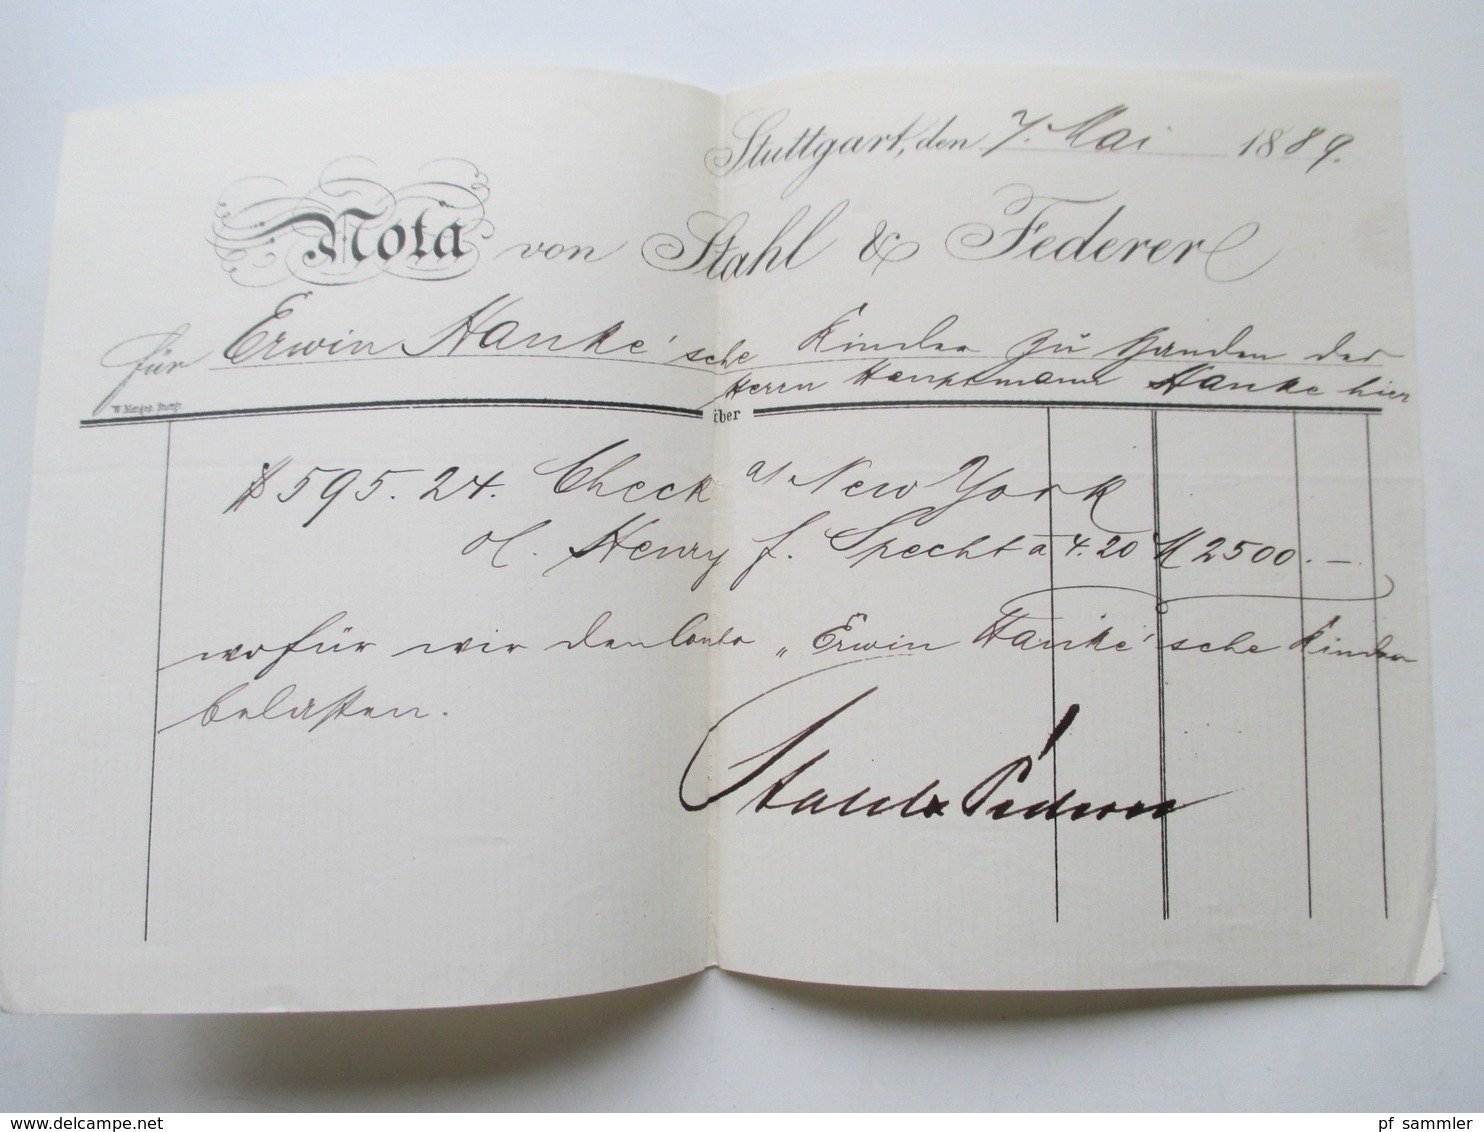 Stuttgart, den 7. Mai 1889.
Nota von Stahl & Federer
für Erwin Hanke'sche Kinder zu Handen des
Herrn Hauptmann Hanke hier
über
$ 595.24. Check a/ New York
o/. Henry f. Specht a 4.20 M 2500.—
wofür wir den Conto „Erwin Hanke'sche Kinder
belasten.
Stahl & Federer
pf_sammler